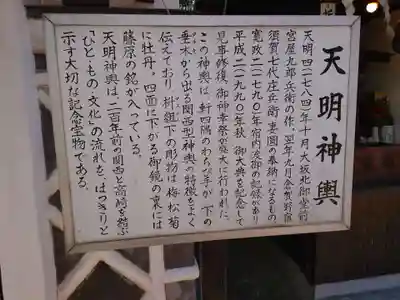 天明神輿
天明四(一七八四)年十月大坂北御堂前
宮屋九郎兵衛の作、翌年九月倉賀野宿
須賀七代庄兵衛妻園の奉納になるもの
寛政二(一七九〇)年宿内渡御の記録があり
平成二(一九九〇)年秋、御大典を記念して
見事修復、御神幸祭が盛大に行われた。
この神輿は、軒四隅のわらび手が、下の
垂木から出る関西型神輿の特徴をよく
伝えており、枡組下の彫物は梅・松・菊
に牡丹。四面に下がる御鏡の裏には
藤原の銘が入っている。
天明神輿は、二百年前の関西と高崎を結ぶ
「ひと・もの・文化」の流れを、はっきりと
示す大切な記念宝物である。